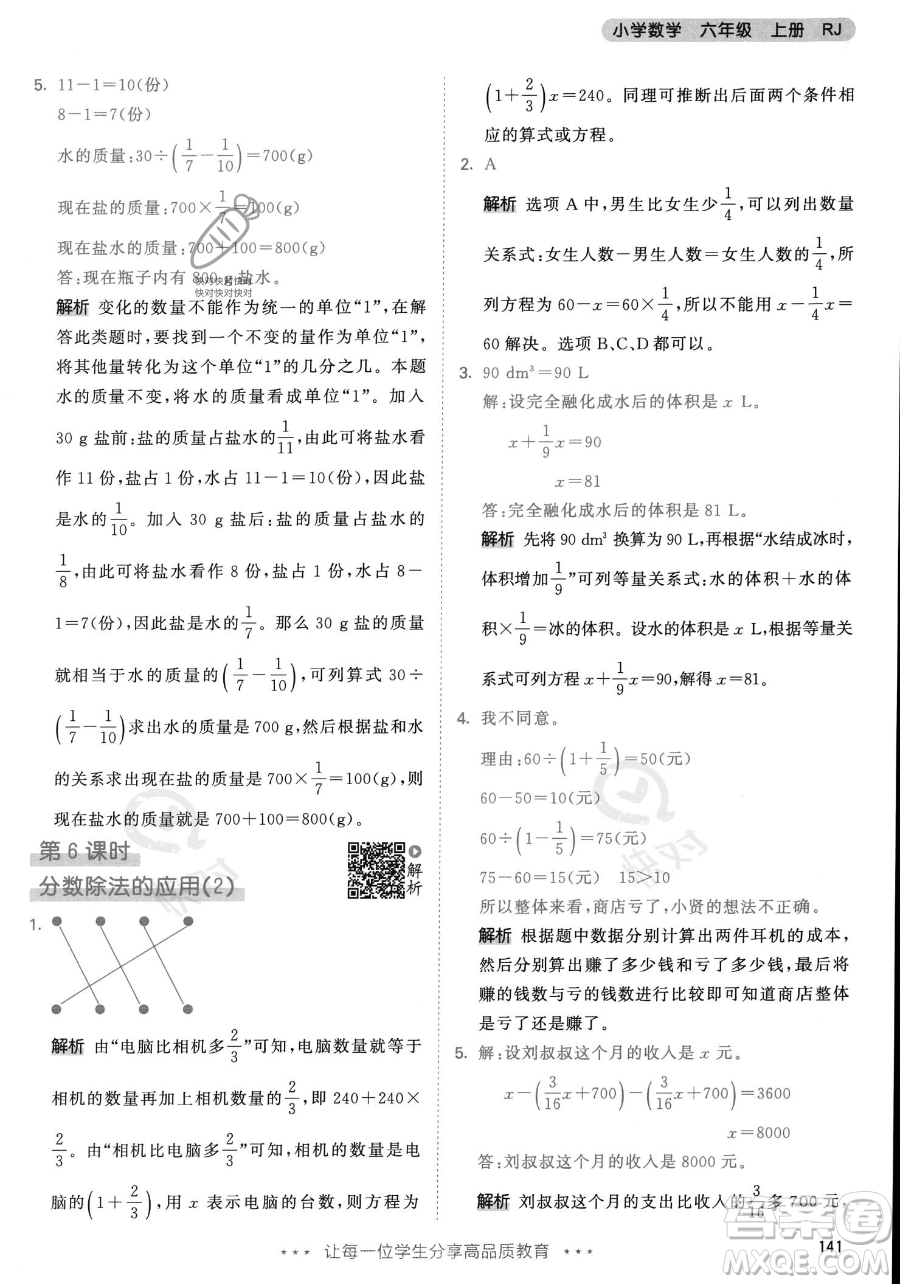 小学数学 六年级 上册 RJ
5. 11－1＝10(份)
8－1＝7(份)
水的质量:30÷(1/7－1/10)＝700(g)
现在盐的质量:700×1/7＝100(g)
现在盐水的质量:700＋100＝800(g)
答:现在瓶子内有 800 g 盐水。
快对快对快对
快对快对快对
解析 变化的数量不能作为统一的单位“1”，在解
答此类题时，要找到一个不变的量作为单位“1”，
将其他量转化为这个单位“1”的几分之几。本题
水的质量不变，将水的质量看成单位“1”。加入
30 g 盐前:盐的质量占盐水的1/11，因此盐水看
作 11 份，盐占 1 份，水占 11－1＝10(份)，因此盐
是水的1/10。加入 30 g 盐后:盐的质量占盐水的
1/8，由此可将盐水看作 8 份，盐占 1 份，水占 8－
1＝7(份)，因此盐是水的1/7。那么 30 g 盐的质量
就相当于水的质量的(1/7－1/10)，可列算式 30÷
(1/7－1/10)求出水的质量是 700 g，然后根据盐和水
的关系求出现在盐的质量是 700×1/7＝100(g)，则
现在盐水的质量是 700＋100＝800(g)。
第 6 课时
分数除法的应用(2)
解析
1.
解析 由“电脑比相机多2/3”可知，电脑数量等于
相机的数量再加上相机数量的2/3，即 240＋240×
2/3。由“相机比电脑多2/3”可知，相机的数量是电
脑的(1＋2/3)，用 x 表示电脑的台数，则方程为
(1＋2/3)x＝240。同理可推断出后面两个条件相
应的算式或方程。
2. A
解析 选项 A 中，男生比女生少1/4，可以列出数量
关系式:女生人数－男生人数＝女生人数×1/4，所
列方程为 60－x＝60×1/4，所以不能用 x－1/4x＝
60 解决。选项 B、C、D 都可以。
3. 90 dm³＝90 L
解:设完全融化成水后的体积是 x L。
x＋1/9x＝90
x＝81
答:完全融化成水后的体积是 81 L。
解析 先将 90 dm³ 换算为 90 L，再根据“水结成冰时，
体积增加1/9”可列等量关系式:水的体积＋水的体
积×1/9＝冰的体积。设水的体积是 x L，根据等量关
系式可列方程 x＋1/9x＝90，解得 x＝81。
4. 我不同意。
理由:60÷(1＋1/5)＝50(元)
60－50＝10(元)
60÷(1－1/5)＝75(元)
75－60＝15(元) 15＞10
所以整体来看，商店亏了，小贤的想法不正确。
解析 根据题中数据分别计算出两件耳机的成本，
然后分别算出赚了多少钱和亏了多少钱，最后将
赚的钱数与亏的钱数进行比较即可知道商店是
亏了还是赚了。
5. 解:设刘叔叔这个月的收入是 x 元。
x－(3/16x＋700)－(3/16x＋700)＝3600
x＝8000
答:刘叔叔这个月的收入是 8000 元。
解析 刘叔叔这个月的支出比收入的3/16多 700 元，
让每一位学生分享高品质教育
141
快对
快对
答案圈